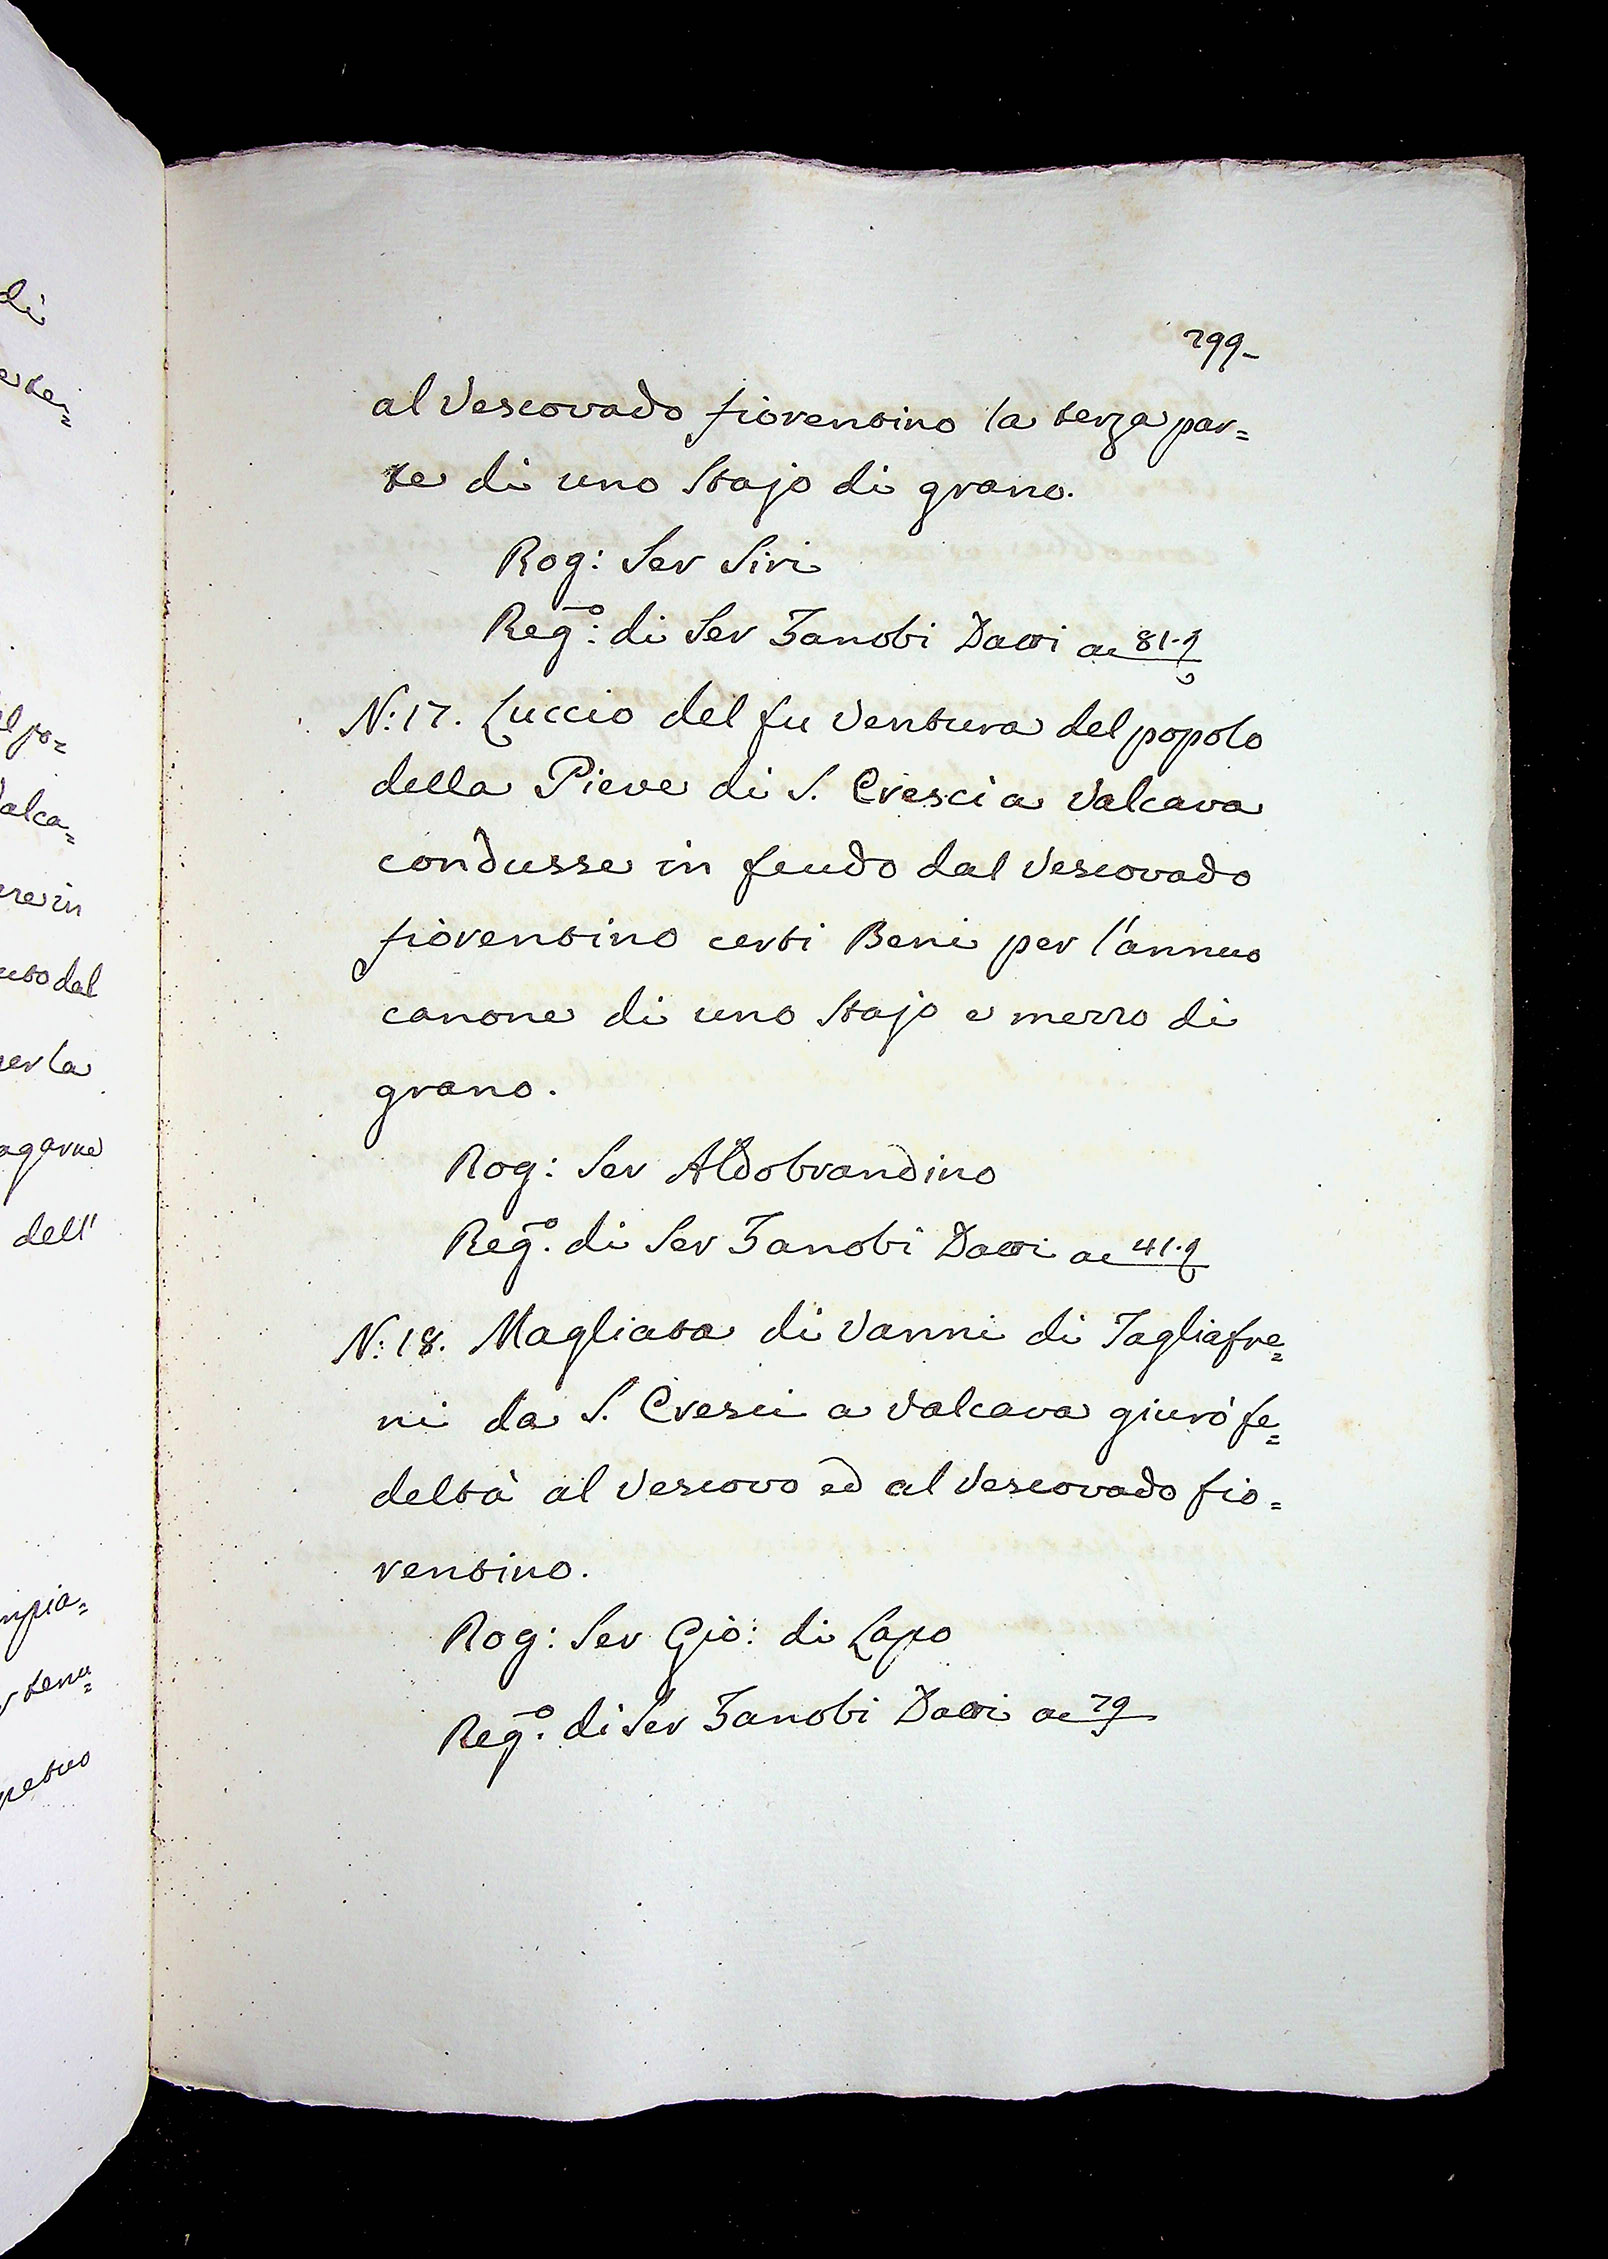 di
799
al Vescovado fiorentino la terza par=
te di uno Stajo di grano.
Rog: Ser Siri
Reg:o di Ser Zanobi Dazzi a
N: 17. Luccio del fu Ventura del popolo
della Pieve di S. Cresci a Valcava
condusse in feudo dal Vescovado
fiorentino certi Beni per l'annuo
canone di uno Stajo e mezzo di
grano.
Rog: Ser Aldobrandino
Reg:o di Ser Zanobi Dazzi a
N: 18. Magliata di Vanni di Tagliafre=
ni da S. Cresci a Valcava giurò fe=
deltà al Vescovo ed al Vescovado fio=
rentino.
Rog: Ser Gio: di Lapo
Reg:o di Ser Zanobi Dazzi a 79
dell'